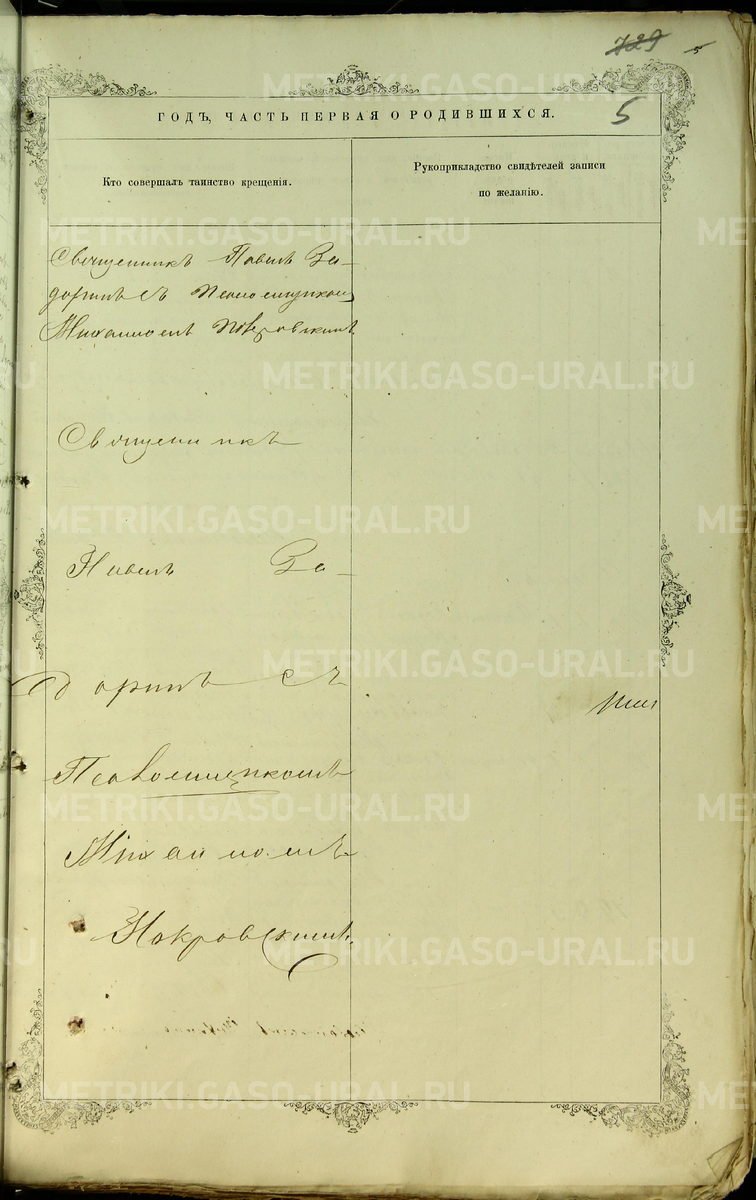 729 5
5
ГОДЪ, ЧАСТЬ ПЕРВАЯ О РОДИВШИХСЯ.
Кто совершалъ таинство крещенія.
Рукоприкладство свидѣтелей записи
по желанію.
Священникъ Павелъ За-
доринъ съ Псаломщикомъ
Михаиломъ Покровскимъ
Священникъ
Павелъ За-
доринъ съ
Псаломщикомъ
Михаиломъ
Покровскимъ
METRIKI.GASO-URAL.RU